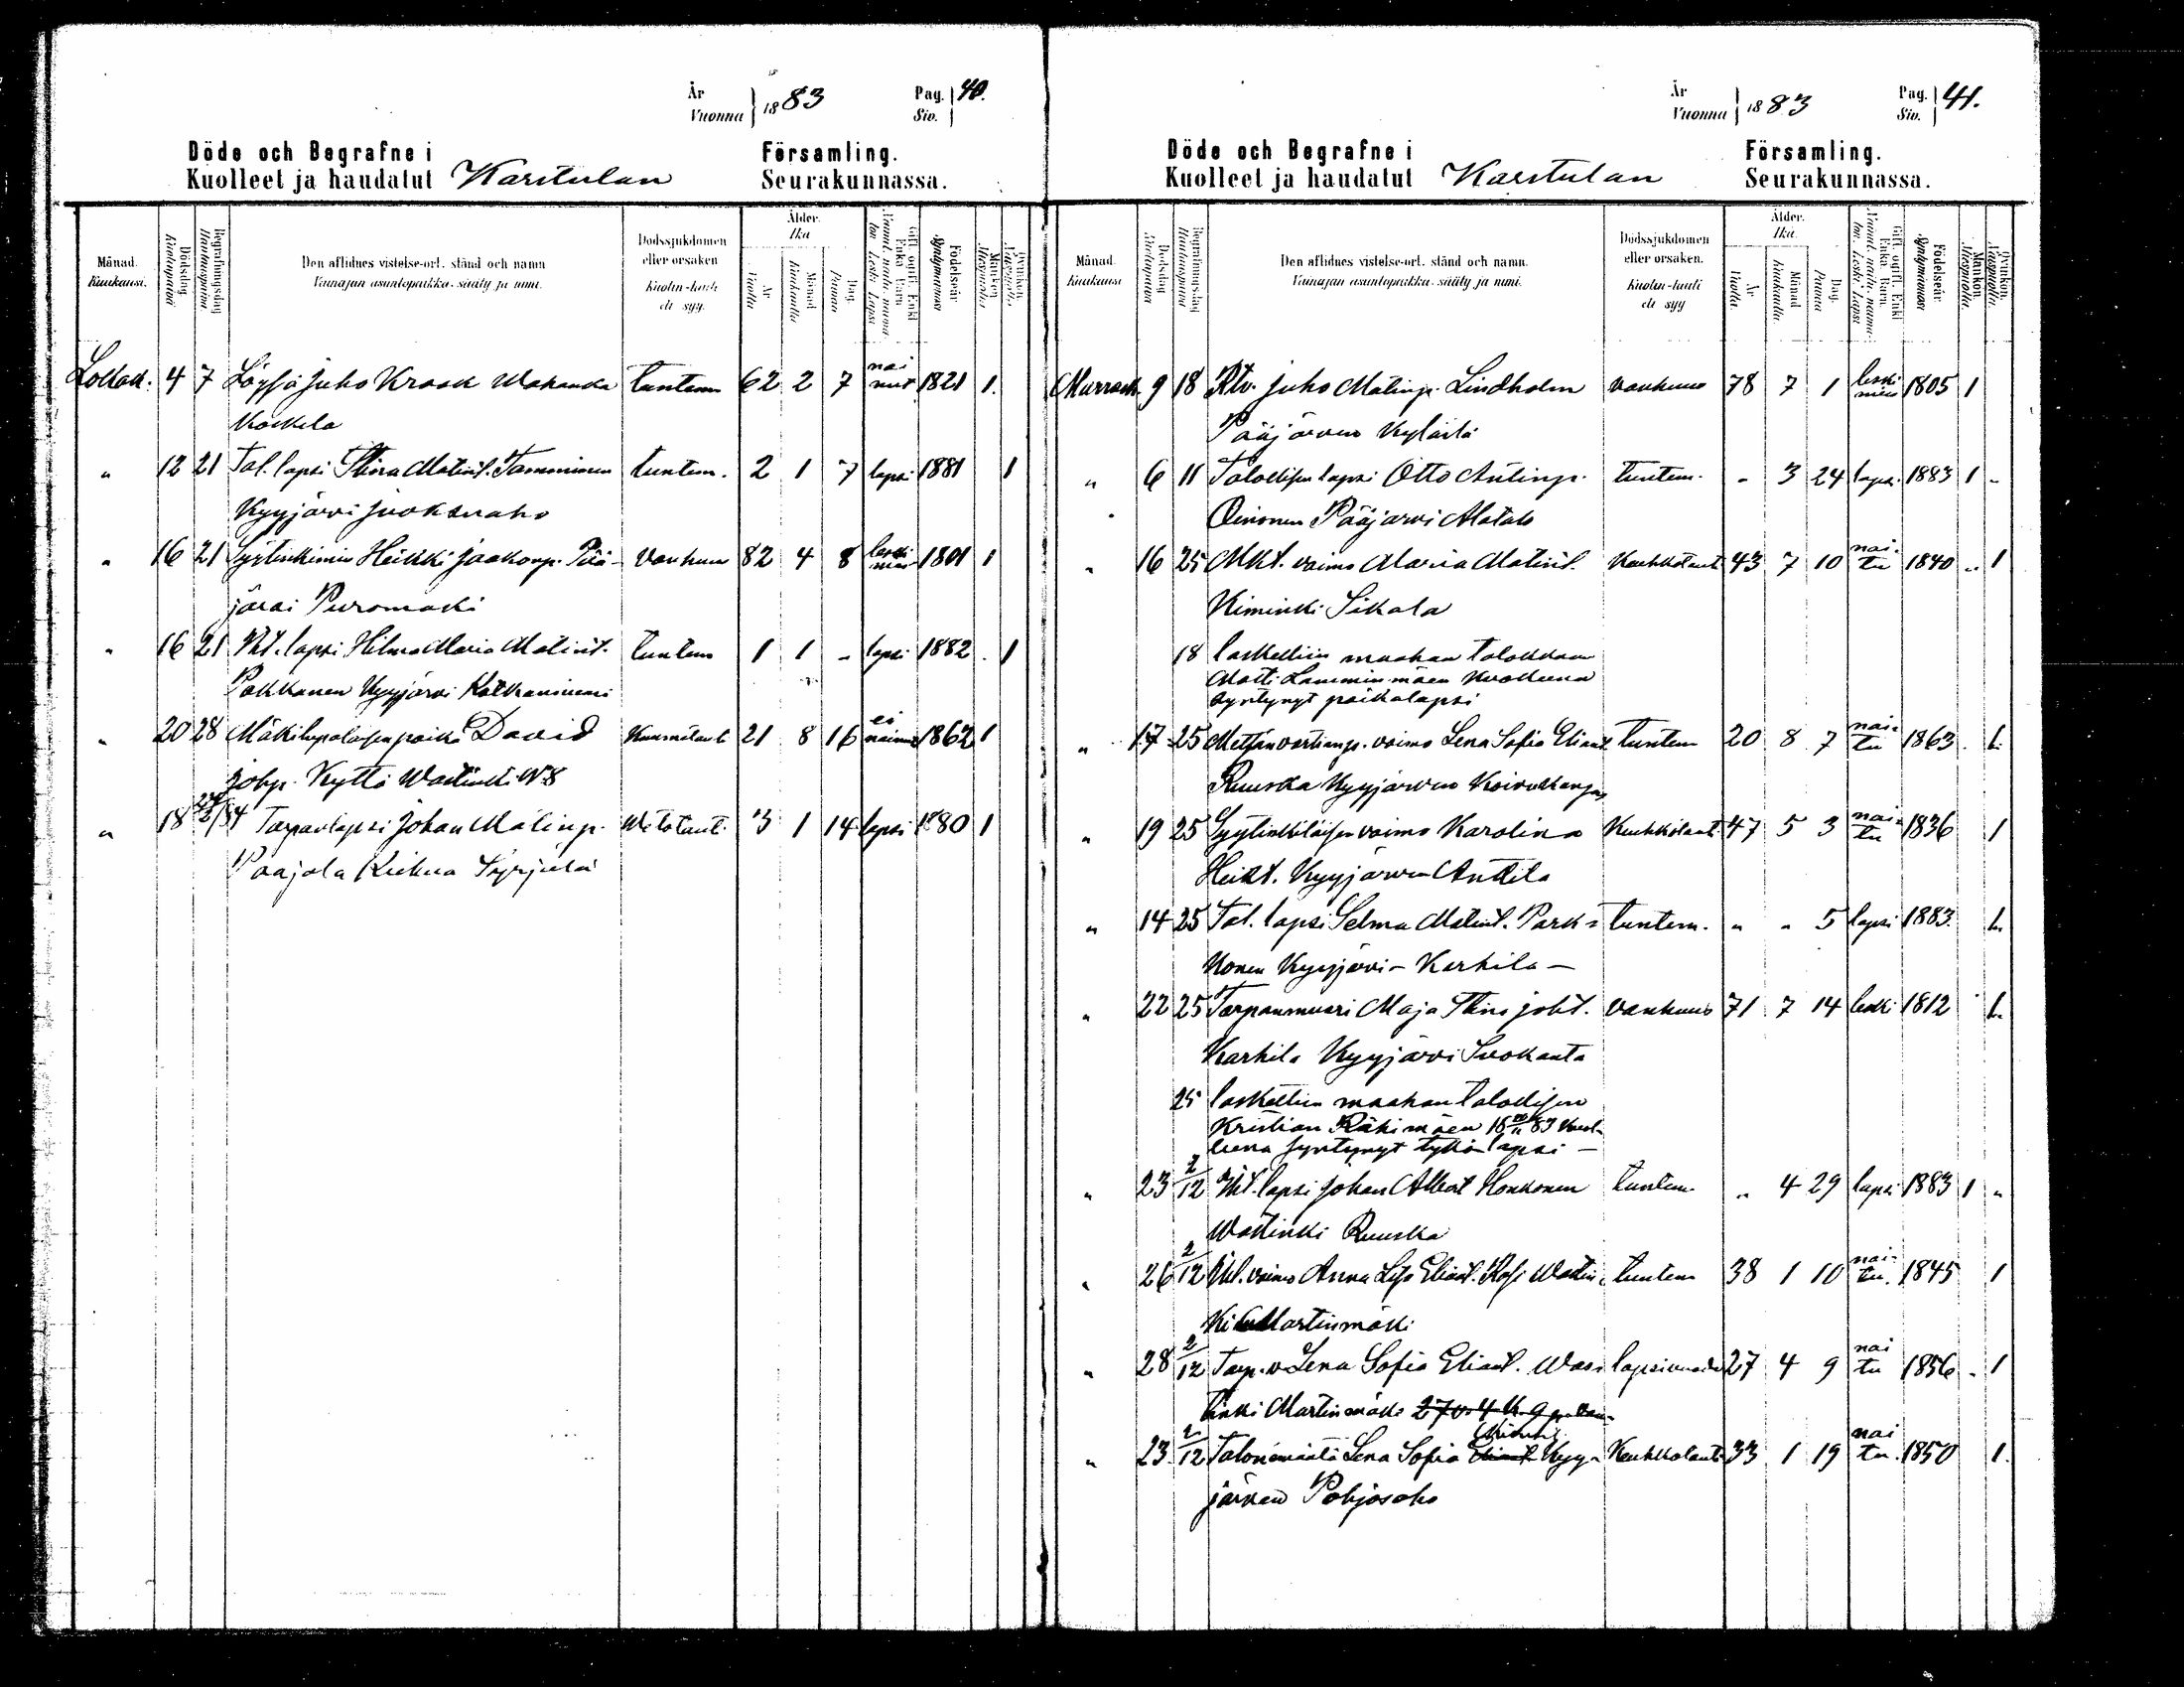 År Vuonna 1883 Pag. Siv. 40.
Döde och Begrafne i Församling.
Kuolleet ja haudatut Karstulan Seurakunnassa.
Månad. Kuukausi. Dödsdag Kuolinpäivä Begrafningsdag Hautauspäivä Den aflidnes vistelse-ort, stånd och namn Vainajan asuntopaikka, sääty ja nimi. Dödssjukdomen eller orsaken Kuolin-tauti eli syy. Ålder. Ikä År Vuotta Månad Kuukautta Dag. Päivää Födelseår Syntymävuosi Mankön Miespuolia
Lokak. 4 7 Löysä Juho Kraak Wahanka tuntem 62 2 7 nai mis 1821 1.
Kokkela
" 12 21 Tal. lapsi Stina Matint. Tamminen tuntem. 2 1 7 lapsi 1881 1
Kyyjärvi Juoksuaho
" 16 21 Syytinkimies Heikki Jaakonp. Pää- Vanhuus 82 4 8 leski mies 1801 1
järvi Puromäki
" 16 21 Itst. lapsi Hilma Maria Matint. tuntem 1 1 - lapsi 1882 . 1
Pokkanen Kyyjärvi Kotkanniemi
" 20 28 Mäkitupalaisen poika David Kuumetauti 21 8 16 ei naimis 1862 1
Johp. Kyttä Wastinki N:8
" 18 24/2/84 Torparilapsi Johan Matinp. Wetotaut. 3 1 14 lapsi 1880 1
Paajala Rieka Syrjälä
År Vuonna 1883 Pag. Siv. 41.
Döde och Begrafne i Församling.
Kuolleet ja haudatut Karstulan Seurakunnassa.
Månad Kuukausi Dödsdag Kuolinpäivä Begrafningsdag Hautauspäivä Den aflidnes vistelse-ort, stånd och namn. Vainajan asuntopaikka, sääty ja nimi. Dödssjukdomen eller orsaken. Kuolin-tauti eli syy Ålder. Ikä. År Vuotta. Månad Kuukautta. Dag. Päivää Födelseår Syntymävuosi Mankön. Miespuolia. Qvinkön. Vaimopuolia.
Marrask. 9 18 Rtv. Juho Matinp. Lindholm vanhuus 78 7 1 leski mies 1805 1
Pääjärven kylästä
" 6 11 Talollisen lapsi Otto Antinp. tuntem. - 3 24 laps. 1883 1 "
Oinonen Pääjärvi Alatalo
" 16 25 Mkt. vaimo Maria Matint. Keuhkotaut 43 7 10 nai- tu 1840 " 1
Kiminki Sikala
18 laskettiin maahan talokkaan
Matti Lamminmäen kuolleena
syntynyt poikalapsi
" 17 25 Metsänvartianp. vaimo Lena Sofia Eliant. tuntem 20 8 7 nai- tu 1863 . 1.
Ruuska Kyyjärven Koivukangas
" 19 25 Syytinkiläisen vaimo Karolina Keuhkotaut. 47 5 3 nai- tu 1836 1
Heikt. Kyyjärven Anttila
" 14 25 Tal. lapsi Selma Matint. Park- tuntem. " " 5 lapsi 1883. 1.
konen Kyyjärvi - Karhila -
" 22 25 Torpanmuori Maja Stina Joht. vanhuus 71 7 14 leski 1812 1.
Karhila Kyyjärvi Suokanta
25 laskettiin maahan talollisen
Kristian Räkimäen 83 kuol-
leena syntynyt tyttö lapsi -
" 23 2/12 Itst. lapsi Johan Albert Honkonen tuntem " 4 29 lapsi 1883 1 "
Wastinki Ruuska
" 26 2/12 Itst. vaimo Anna Lisa Eliant. Wastin- tuntem 38 1 10 nai- tu. 1845 1
ki Martinmäki
" 28 2/12 Torp. v. Lena Sofia Eliant. Was- lapsivuode 27 4 9 nai tu 1856 . 1
tinki Martinmäki 27 v. 4 k. 9 p.
" 23 2/12 Talonemäntä Lena Sofia Eliant. Kyy- Keuhkotauti 33 1 19 nai tu. 1850 1.
järven Pohjosaho